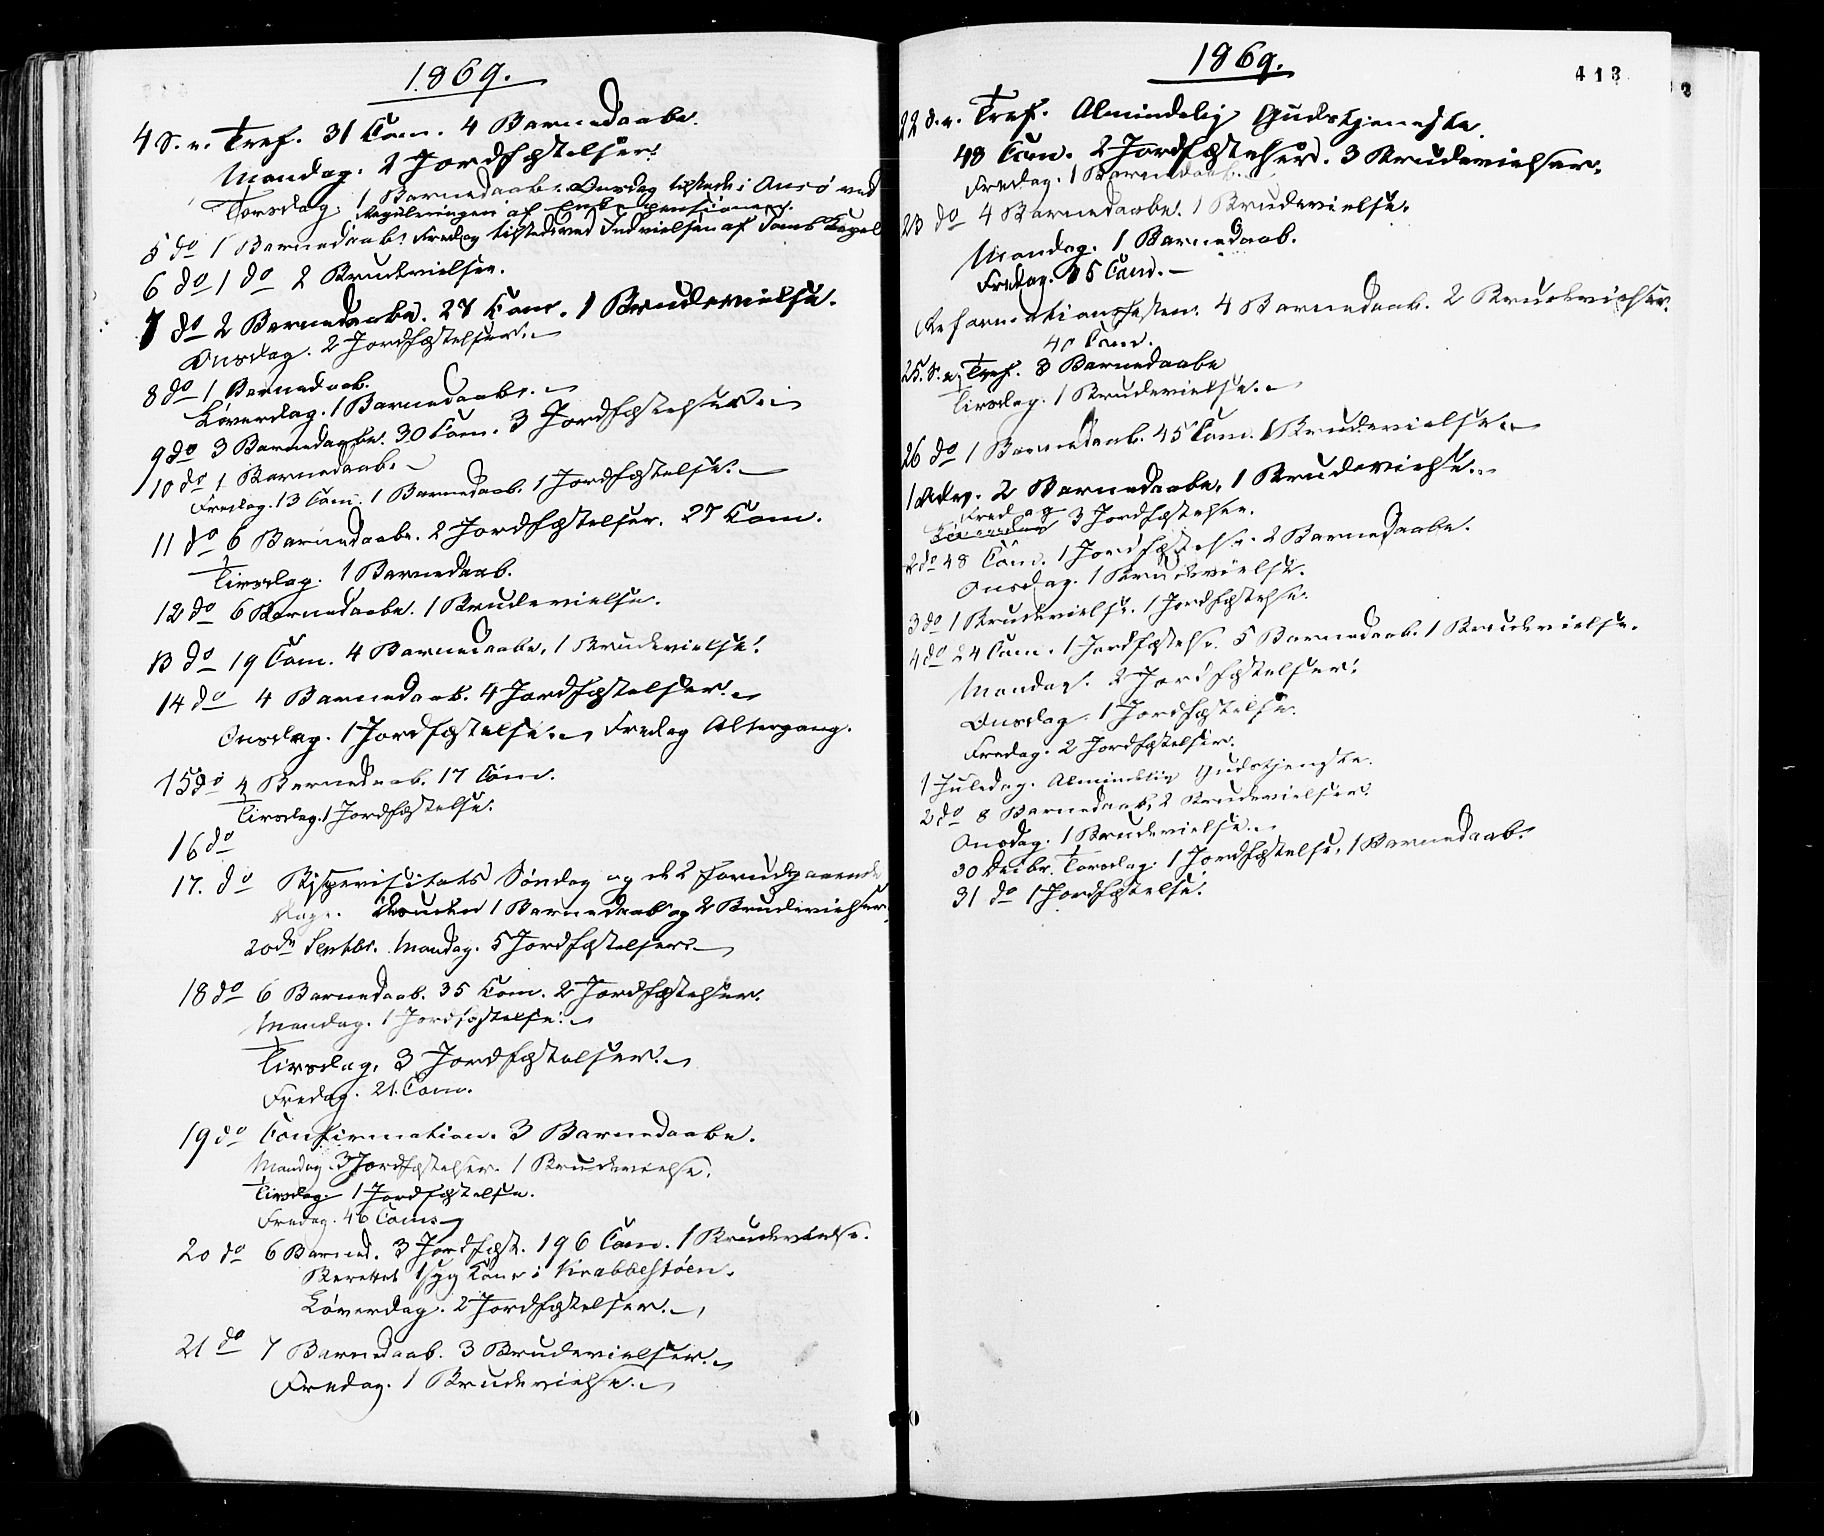 1869.
4 S. e. Tref. 31 Com. 4 Barnedaabe.
Mandag. 2 Jordfæstelser.
Torsdag. 1 Barnedaab. Onsdag tilstede i Onsö ved
Reguleringen af Enkepensionen.
5 do 1 Barnedaab. Fredag tilstede ved Indvielsen af Soms Capel
6 do 1 do 2 Brudevielser.
7 do 2 Barnedaabe. 27 Com. 1 Brudevielse.
Onsdag. 2 Jordfæstelser.
8 do 1 Barnedaab.
Löverdag. 1 Barnedaab.
9 do 3 Barnedaabe. 30 Com. 3 Jordfæstelser.
10 do 1 Barnedaab.
Fredag. 13 Com. 1 Barnedaab. 1 Jordfæstelse.
11 do 6 Barnedaabe. 2 Jordfæstelser. 27 Com.
Tirsdag. 1 Barnedaab.
12 do 6 Barnedaabe. 1 Brudevielse.
13 do 19 Com. 4 Barnedaabe. 1 Brudevielse.
14 do 4 Barnedaab. 4 Jordfæstelser.
Onsdag. 1 Jordfæstelse. Fredag Altergang.
15 do 4 Barnedaab. 17 Com.
Tirsdag. 1 Jordfæstelse.
16 do
17. do Bispevisitats Söndag og de 2 forudgaaende
Dage. Desuden 1 Barnedaab og 2 Brudevielser.
20de Septbr. Mandag. 5 Jordfæstelser.
18 do 6 Barnedaab. 35 Com. 2 Jordfæstelser.
Mandag. 1 Jordfæstelse.
Tirsdag. 3 Jordfæstelser.
Fredag. 21. Com.
19 do Confirmation. 3 Barnedaabe.
Mandag. 3 Jordfæstelser. 1 Brudevielse.
Tirsdag. 1 Jordfæstelse.
Fredag. 46 Com.
20 do 6 Barned. 3 Jordfæst. 196 Com. 1 Brudevielse.
Berettet 1 syg Kone i Krabbestöen.
Löverdag. 2 Jordfæstelser.
21 do 7 Barnedaab. 3 Brudevielser.
Fredag. 1 Brudevielse.
1869.
413
22 S. e. Tref. Almindelig Gudstjeneste.
48 Com. 2 Jordfæstelser. 3 Brudevielser.
Fredag. 1 Barnedaab.
23 do 4 Barnedaabe. 1 Brudevielse.
Mandag. 1 Barnedaab.
Fredag. 15 Com.
Reformationsfesten. 4 Barnedaab. 2 Brudevielser.
Com.
25. S. e. Tref. 3 Barnedaabe
Tirsdag. 1 Brudevielse.
26 do 1 Barnedaab. 45 Com. 1 Brudevielse.
1 Adv. 2 Barnedaabe, 1 Brudevielse.
Fredag
Löverdag 3 Jordfæstelser.
2 do 48 Com. 1 Jordfæstelse. 2 Barnedaabe.
Onsdag. 1 Brudevielse.
3 do 1 Brudevielse. 1 Jordfæstelse.
4 do 24 Com. 1 Jordfæstelse. 5 Barnedaab. 1 Brudevielse.
Mandag. 2 Jordfæstelser.
Onsdag. 1 Jordfæstelse.
Fredag. 2 Jordfæstelser.
1 Juledag. Almindelig Gudstjeneste.
2 do 8 Barnedaab, 2 Brudevielser.
Onsdag. 1 Brudevielse.
30 Decbr. Torsdag. 1 Jordfæstelse. 1 Barnedaab.
31 do 1 Jordfæstelse.